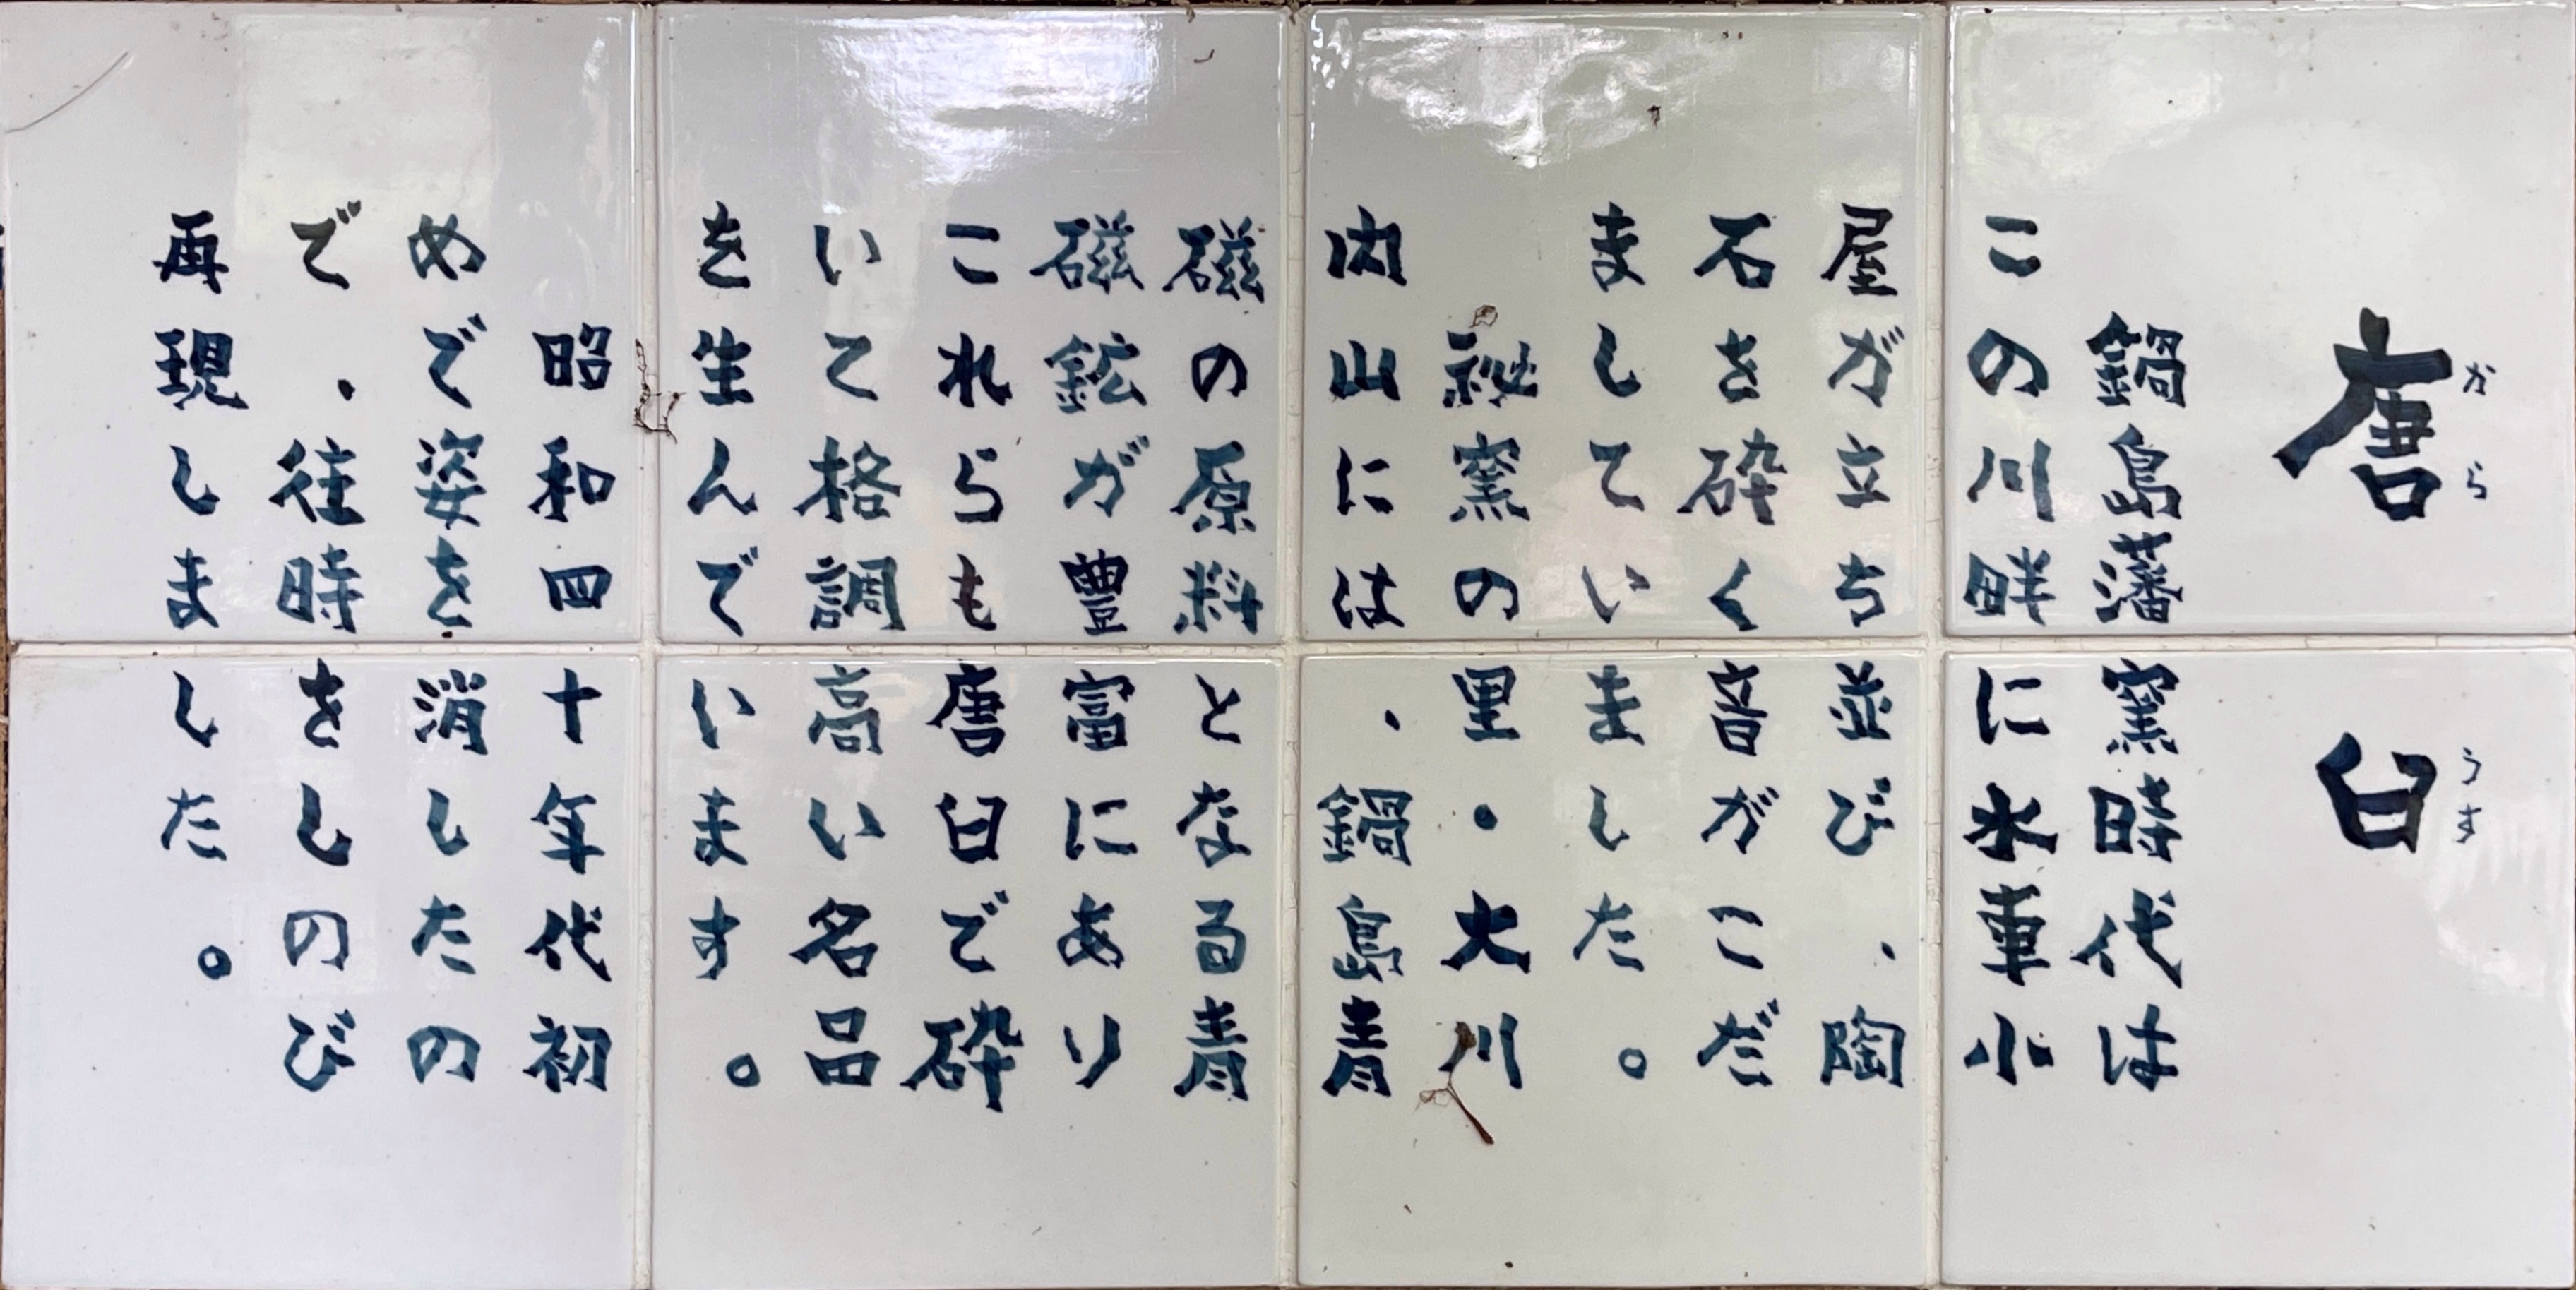 唐臼
から うす
鍋島藩窯時代は
この川畔に水車小
屋が立ち並び、陶
石を砕く音がこだ
ましていました。
秘窯の里・大川
内山には、鍋島青
磁の原料となる青
磁鉱が豊富にあり
これらも唐臼で砕
いて格調高い名品
を生んでいます。
昭和四十年代初
めで姿を消したの
で、往時をしのび
再現しました。